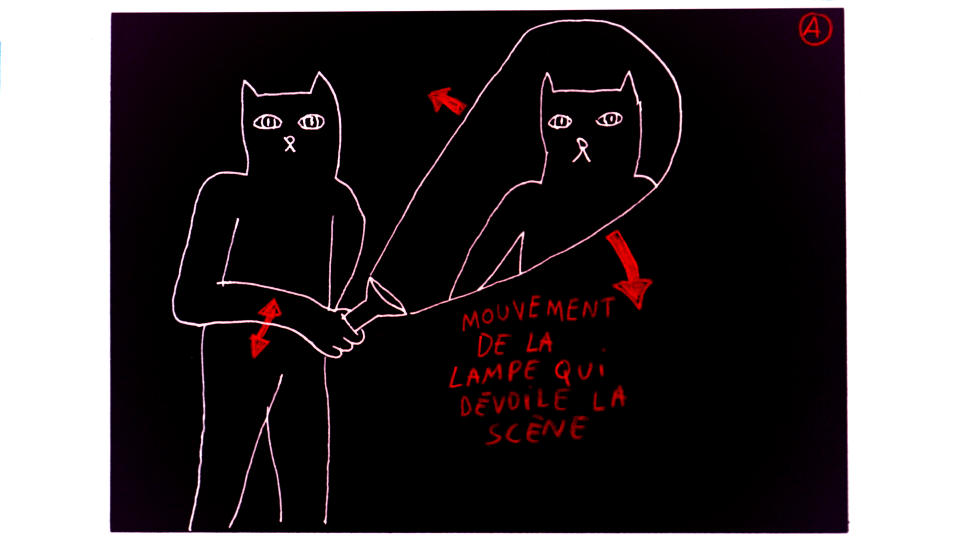 A
MOUVEMENT
DE LA
LAMPE QUi
DÉVOiLE LA
SCÈNE